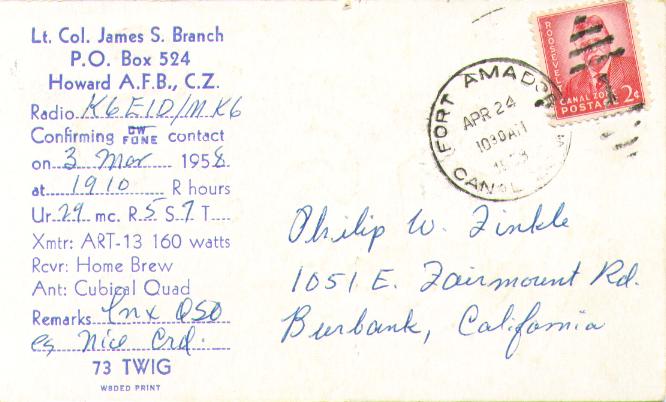 Lt. Col. James S. Branch
P.O. Box 524
Howard A.F.B., C.Z.
Radio K6EID/M K6
Confirming CW FONE contact
on 3 Mar 1958
at 1910 R hours
Ur 29 mc. R 5 S 7 T
Xmtr: ART-13 160 watts
Rcvr: Home Brew
Ant: Cubical Quad
Remarks Tnx QSO
es Nice Crd.
73 TWIG
W8DED PRINT
FORT AMADOR
APR 24
1030AM
CANAL
ROOSEVELT
CANAL ZONE
POSTAGE 2¢
Philip W. Finkle
1051 E. Fairmount Rd.
Burbank, California